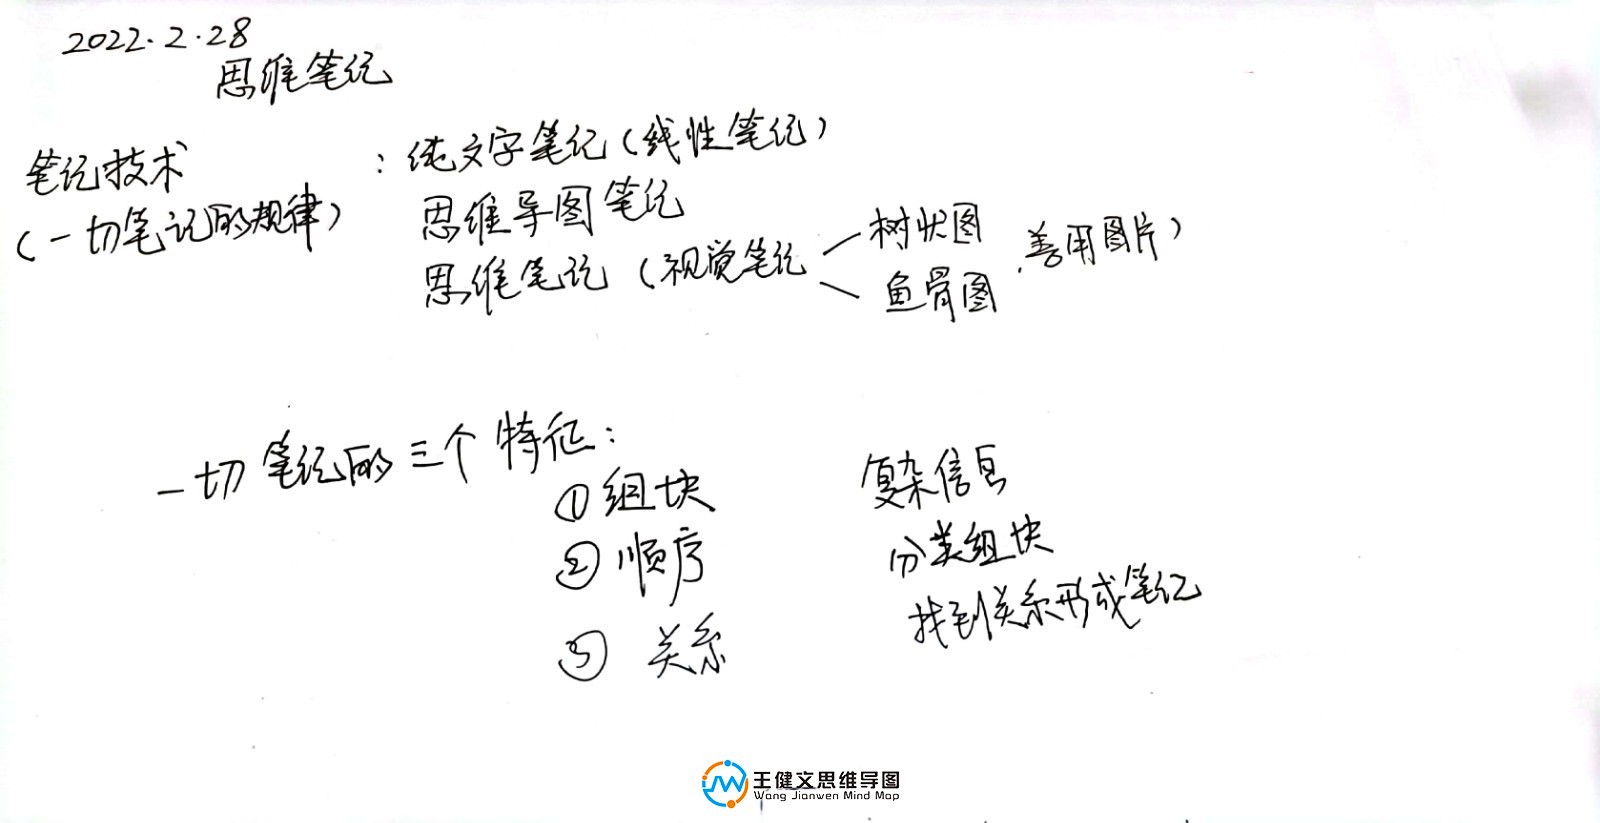 2022.2.28
思维笔记
笔记技术 : 纯文字笔记(线性笔记)
(一切笔记的规律) 思维导图笔记
思维笔记(视觉笔记 树状图 鱼骨图 .善用图片)
一切笔记的三个特征:
①组块
②顺序
③关系
复杂信息
分类组块
找到关系形成笔记
王健文思维导图
Wang Jianwen Mind Map